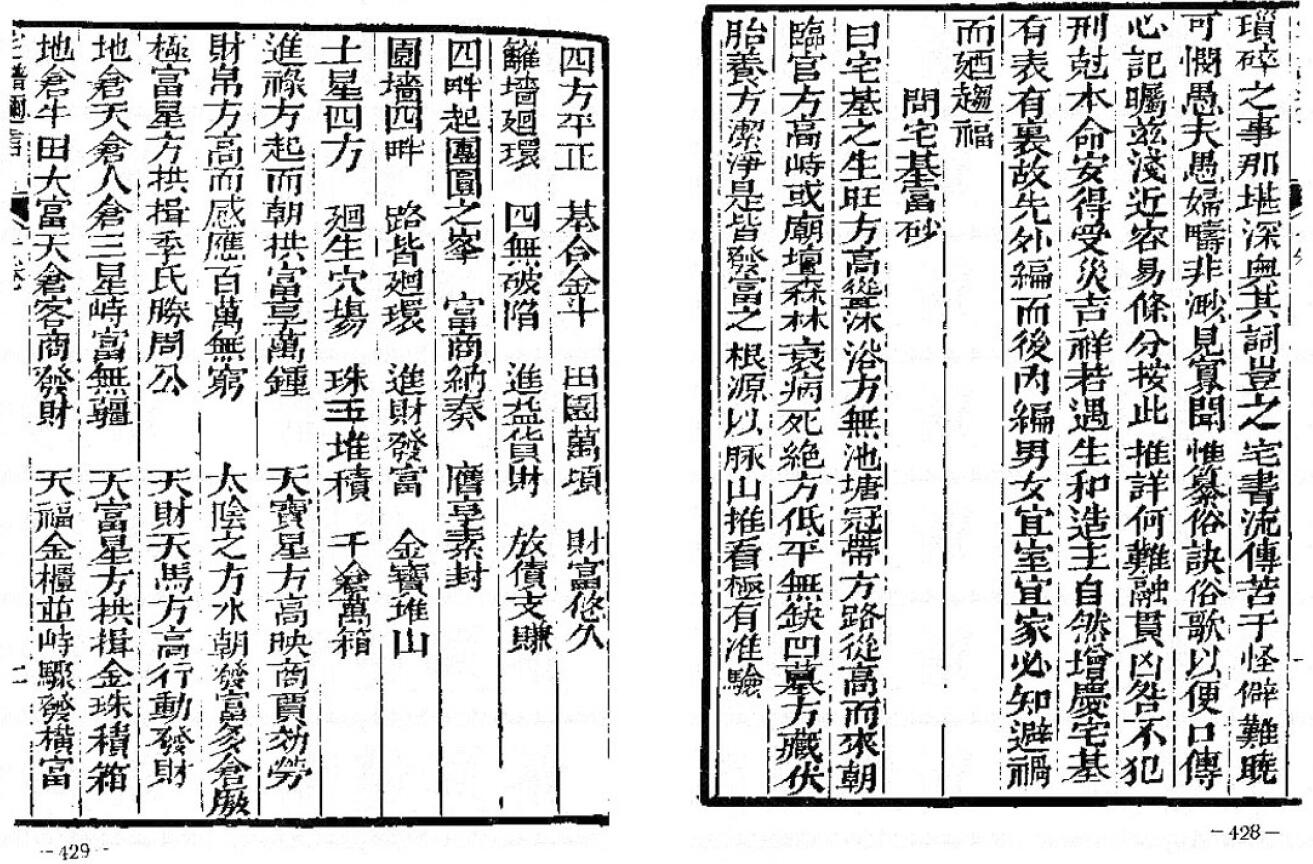 瑣碎之事那堪深奥其詞豈之宅書流傳苦于怪僻難曉
可憫愚夫愚婦疇非渺見寡聞惟纂俗訣俗歌以便口傳
心記矚兹淺近容易條分按此推詳何難融貫凶咎不犯
刑尅本命安得受災吉祥若遇生和造主自然增慶宅基
有表有裏故先外編而後内編男女宜室宜家必知避禍
而廼趨福
問宅基富砂
曰宅基之生旺方高聳沐浴方無池塘冠帶方路從高而來朝
臨官方高峙或廟壇森林衰病死絶方低平無缺凹墓方藏伏
胎養方潔淨是皆發富之根源以脉山推看極有准驗
-428-
四方平正 基合金斗 田園萬頃 財富悠久
籬墻廻環 四無破陷 進益貨財 放債支賺
四畔起團圓之峯 富商納奏 膺享素封
圍墻四畔 路皆廻環 進財發富 金寶堆山
土星四方 廻生穴場 珠玉堆積 千倉萬箱
進祿方起而朝拱富享萬鍾 天寶星方高映商賈効勞
財帛方高而感應百萬無窮 太陰之方水朝發富多倉廒
極富星方拱揖季氏勝周公 天財天馬方高行動發財
地倉天倉人倉三星峙富無疆 天富星方拱揖金珠積箱
地倉牛田大富天倉客商發財 天福金櫃並峙驟發横富
-429-